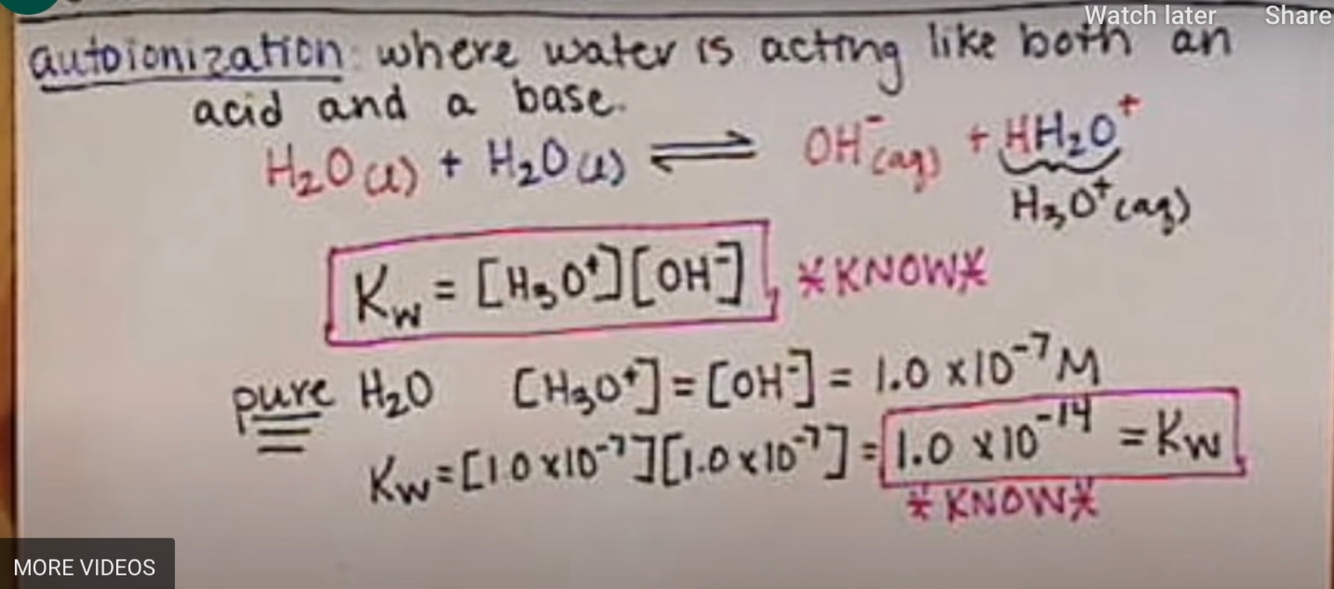 Watch later Share
autoionization: where water is acting like both an
acid and a base.
H₂O(l) + H₂O(l) ⇌ OH⁻(aq) + HH₂O⁺
H₃O⁺(aq)
Kw = [H₃O⁺][OH⁻] *KNOW*
pure H₂O [H₃O⁺] = [OH⁻] = 1.0 x10⁻⁷ M
Kw = [1.0 x10⁻⁷][1.0 x10⁻⁷] = 1.0 x10⁻¹⁴ = Kw
*KNOW*
MORE VIDEOS